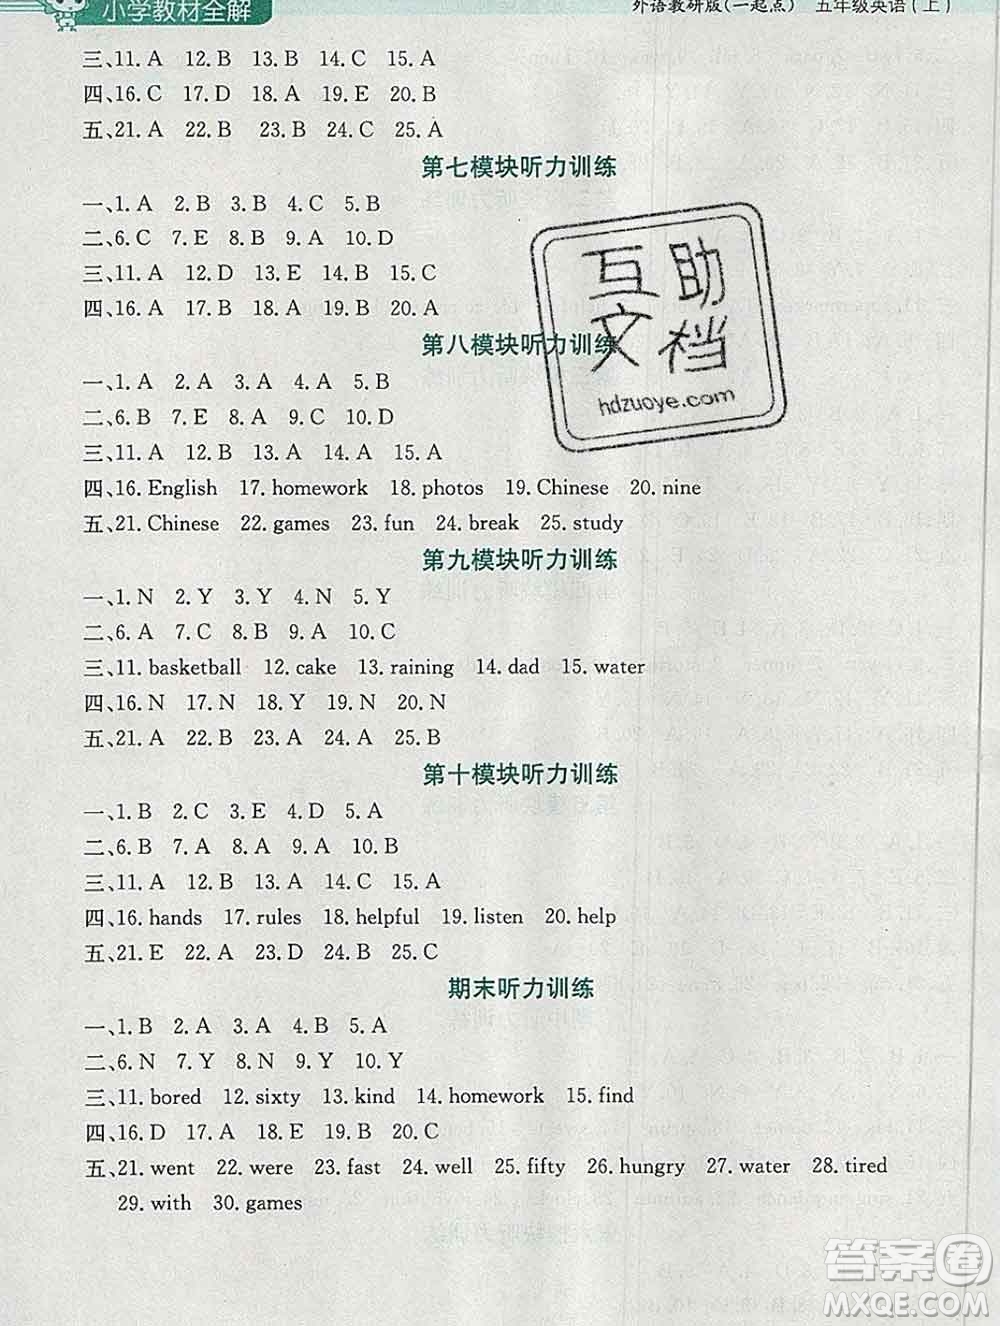 小学教材全解
外语教研版(一起点) 五年级英语(上)
三、11. A 12. B 13. B 14. C 15. A
四、16. C 17. D 18. A 19. E 20. B
五、21. A 22. B 23. B 24. C 25. A
第七模块听力训练
一、1. A 2. B 3. B 4. C 5. B
二、6. C 7. E 8. B 9. A 10. D
三、11. A 12. D 13. E 14. B 15. C
四、16. A 17. B 18. A 19. B 20. B
第八模块听力训练
一、1. A 2. A 3. A 4. C 5. B
二、6. B 7. E 8. A 9. C 10. D
三、11. A 12. B 13. A 14. A 15. A
四、16. English 17. homework 18. photos 19. Chinese 20. nine
五、21. Chinese 22. games 23. fun 24. break 25. study
第九模块听力训练
一、1. N 2. Y 3. Y 4. N 5. Y
二、6. A 7. C 8. B 9. A 10. C
三、11. basketball 12. cake 13. raining 14. dad 15. water
四、16. N 17. N 18. Y 19. N 20. N
五、21. A 22. B 23. A 24. A 25. B
第十模块听力训练
一、1. B 2. C 3. E 4. D 5. A
二、6. B 7. A 8. A 9. A 10. B
三、11. B 12. B 13. A 14. C 15. A
四、16. hands 17. rules 18. helpful 19. listen 20. help
五、21. E 22. A 23. D 24. B 25. C
期末听力训练
一、1. B 2. A 3. A 4. B 5. A
二、6. N 7. Y 8. N 9. Y 10. Y
三、11. bored 12. sixty 13. kind 14. homework 15. find
四、16. D 17. A 18. E 19. B 20. C
五、21. went 22. were 23. fast 24. well 25. fifty 26. hungry 27. water 28. tired
29. with 30. games
互助
文档
hdzuoye.com
答案圈
MXQE.COM